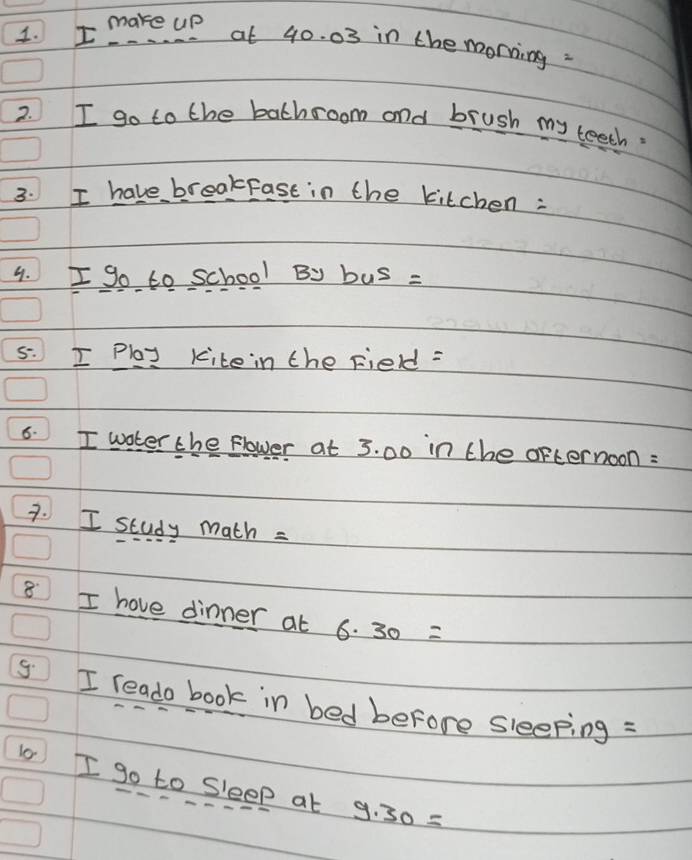 1. I make up at 40.03 in the morning =
2. I go to the bathroom and brush my teeth =
3. I have breakfast in the kitchen =
4. I go to school By bus =
5. I Play kite in the Field =
6. I water the Flower at 3.00 in the afternoon =
7. I study math =
8. I have dinner at 6.30 =
9. I read a book in bed before sleeping =
10 I go to sleep at 9.30 =